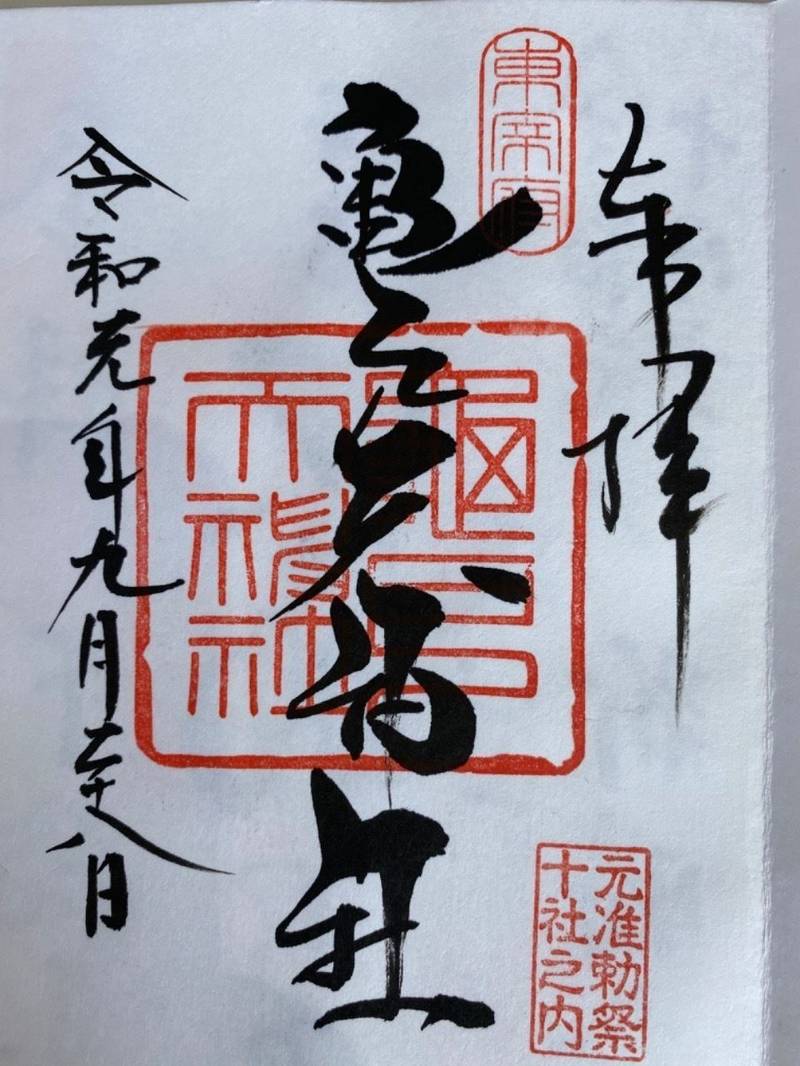 奉拝
東宰府
亀戸天神社
龜戸
天神社
令和元年九月二十八日
元准勅祭
十社之内